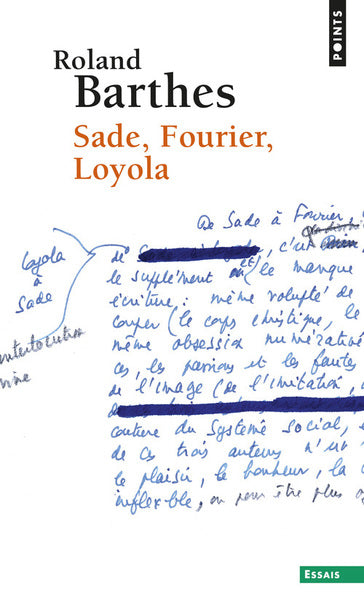 POINTS
Roland
Barthes
Sade, Fourier,
Loyola
De Sade à Fourier,
Loyola
à
Sade
de c'
le supplément le manque
écriture : même volupté de
couper (le corps christique, le
même obsession numérative
ces, les passions et les fautes
de l'image (de l'imitation,
couture du système social, e
de ces trois auteurs n'
le plaisir, le bonheur, la
inflexible, ou peut être plus
ESSAIS